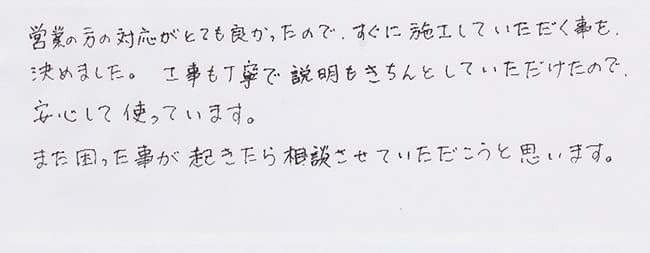 営業の方の対応がとても良かったので、すぐに施工していただく事を、
決めました。工事も丁寧で説明もきちんとしていただけたので、
安心して使っています。
また困った事が起きたら相談させていただこうと思います。